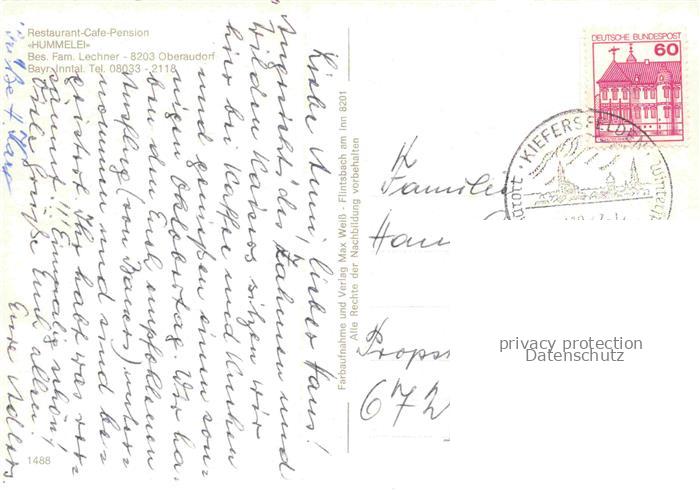 Restaurant-Cafe-Pension
«HUMMELEI»
Bes. Fam. Lechner - 8203 Oberaudorf
Bayr. Inntal. Tel. 08033 - 2118
Liebe Anni, lieber Hans!
Angesichts des Zahmen und
Wilden Kaisers sitzen wir
hier bei Kaffee und Kuchen
und genießen einen son-
nigen Oktobertag. Wir ha-
ben den Euch empfohlenen
Ausflug (von Bauers) unter-
nommen und sind be-
geistert. Ihr habt was ver-
säumt!!! Einmalig schön!
Viele Grüße Euch allen!
Eure Adlers.
1488
Farbaufnahme und Verlag Max Weiß - Flintsbach am Inn 8201
Alle Rechte der Nachbildung vorbehalten
DEUTSCHE BUNDESPOST
60
KIEFERSFELDEN
Familie
Han
Props
672
privacy protection
Datenschutz